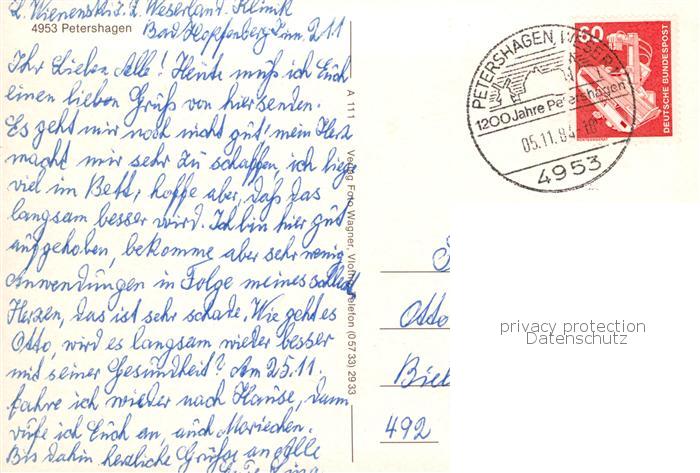 L. Wienenski z. Z. Weserland-Klinik
4953 Petershagen
Bad Hopfenberg Zim. 211
Ihr Lieben Alle! Heute muß ich Euch
einen lieben Gruß von hier senden.
Es geht mir noch nicht gut! mein Herz
macht mir sehr zu schaffen, ich liege
viel im Bett, hoffe aber, daß das
langsam besser wird. Ich bin hier gut
aufgehoben, bekomme aber sehr wenig
Anwendungen in Folge meines
Herzen, das ist sehr schade. Wie geht es
Otto, wird es langsam wieder besser
mit seiner Gesundheit? Am 25.11.
fahre ich wieder nach Hause, dann
rufe ich Euch an, auch Mariechen.
Bis dahin herzliche Grüße an Alle
A 111 Verlag Foto Wagner, Vlotho, Telefon (05733) 2933
PETERSHAGEN, WESER
1200 Jahre Petershagen
05.11.84-10
4953
60
DEUTSCHE BUNDESPOST
Otto
Biele
492
privacy protection
Datenschutz